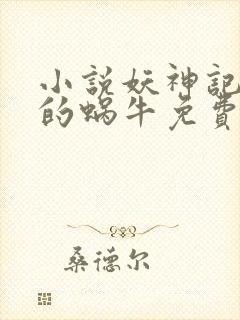 小説妖神記
的蝸牛免費
桑德尔